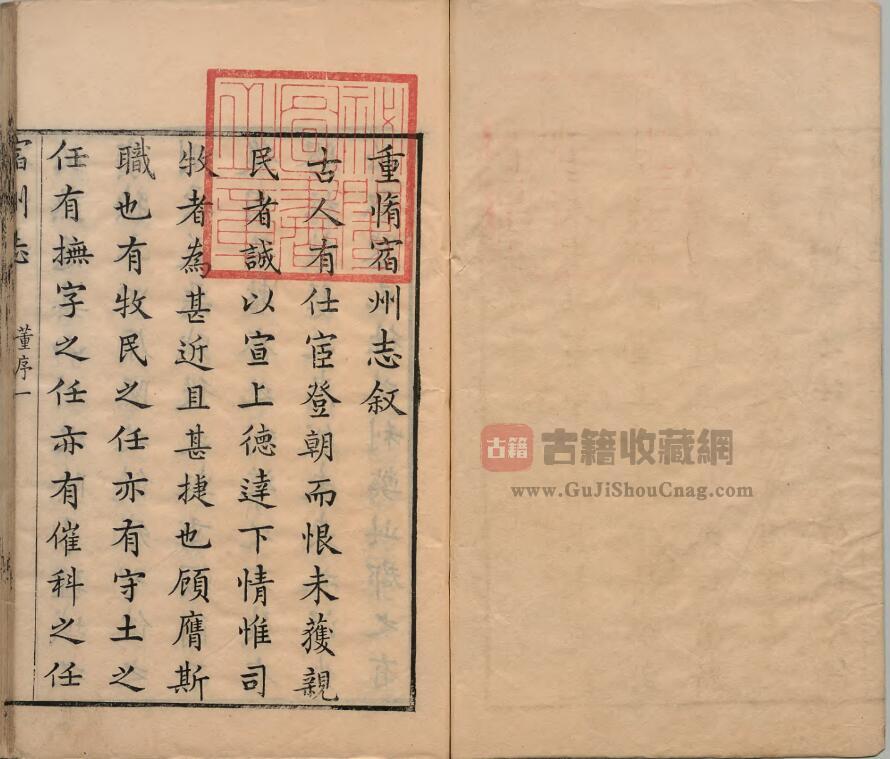 重脩宿州志叙
古人有仕宦登朝而恨未獲親
民者誠以宣上德達下情惟司
牧者為甚近且甚捷也顧膺斯
職也有牧民之任亦有守土之
任有撫字之任亦有催科之任
宿州志
董序一
祕閣
圖書
之章
古籍
古籍收藏網
www.GuJiShouCnag.com